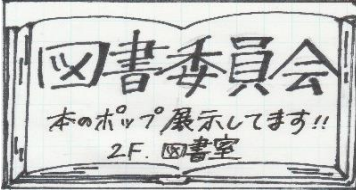 図書委員会
本のポップ展示してます!!
2F. 図書室